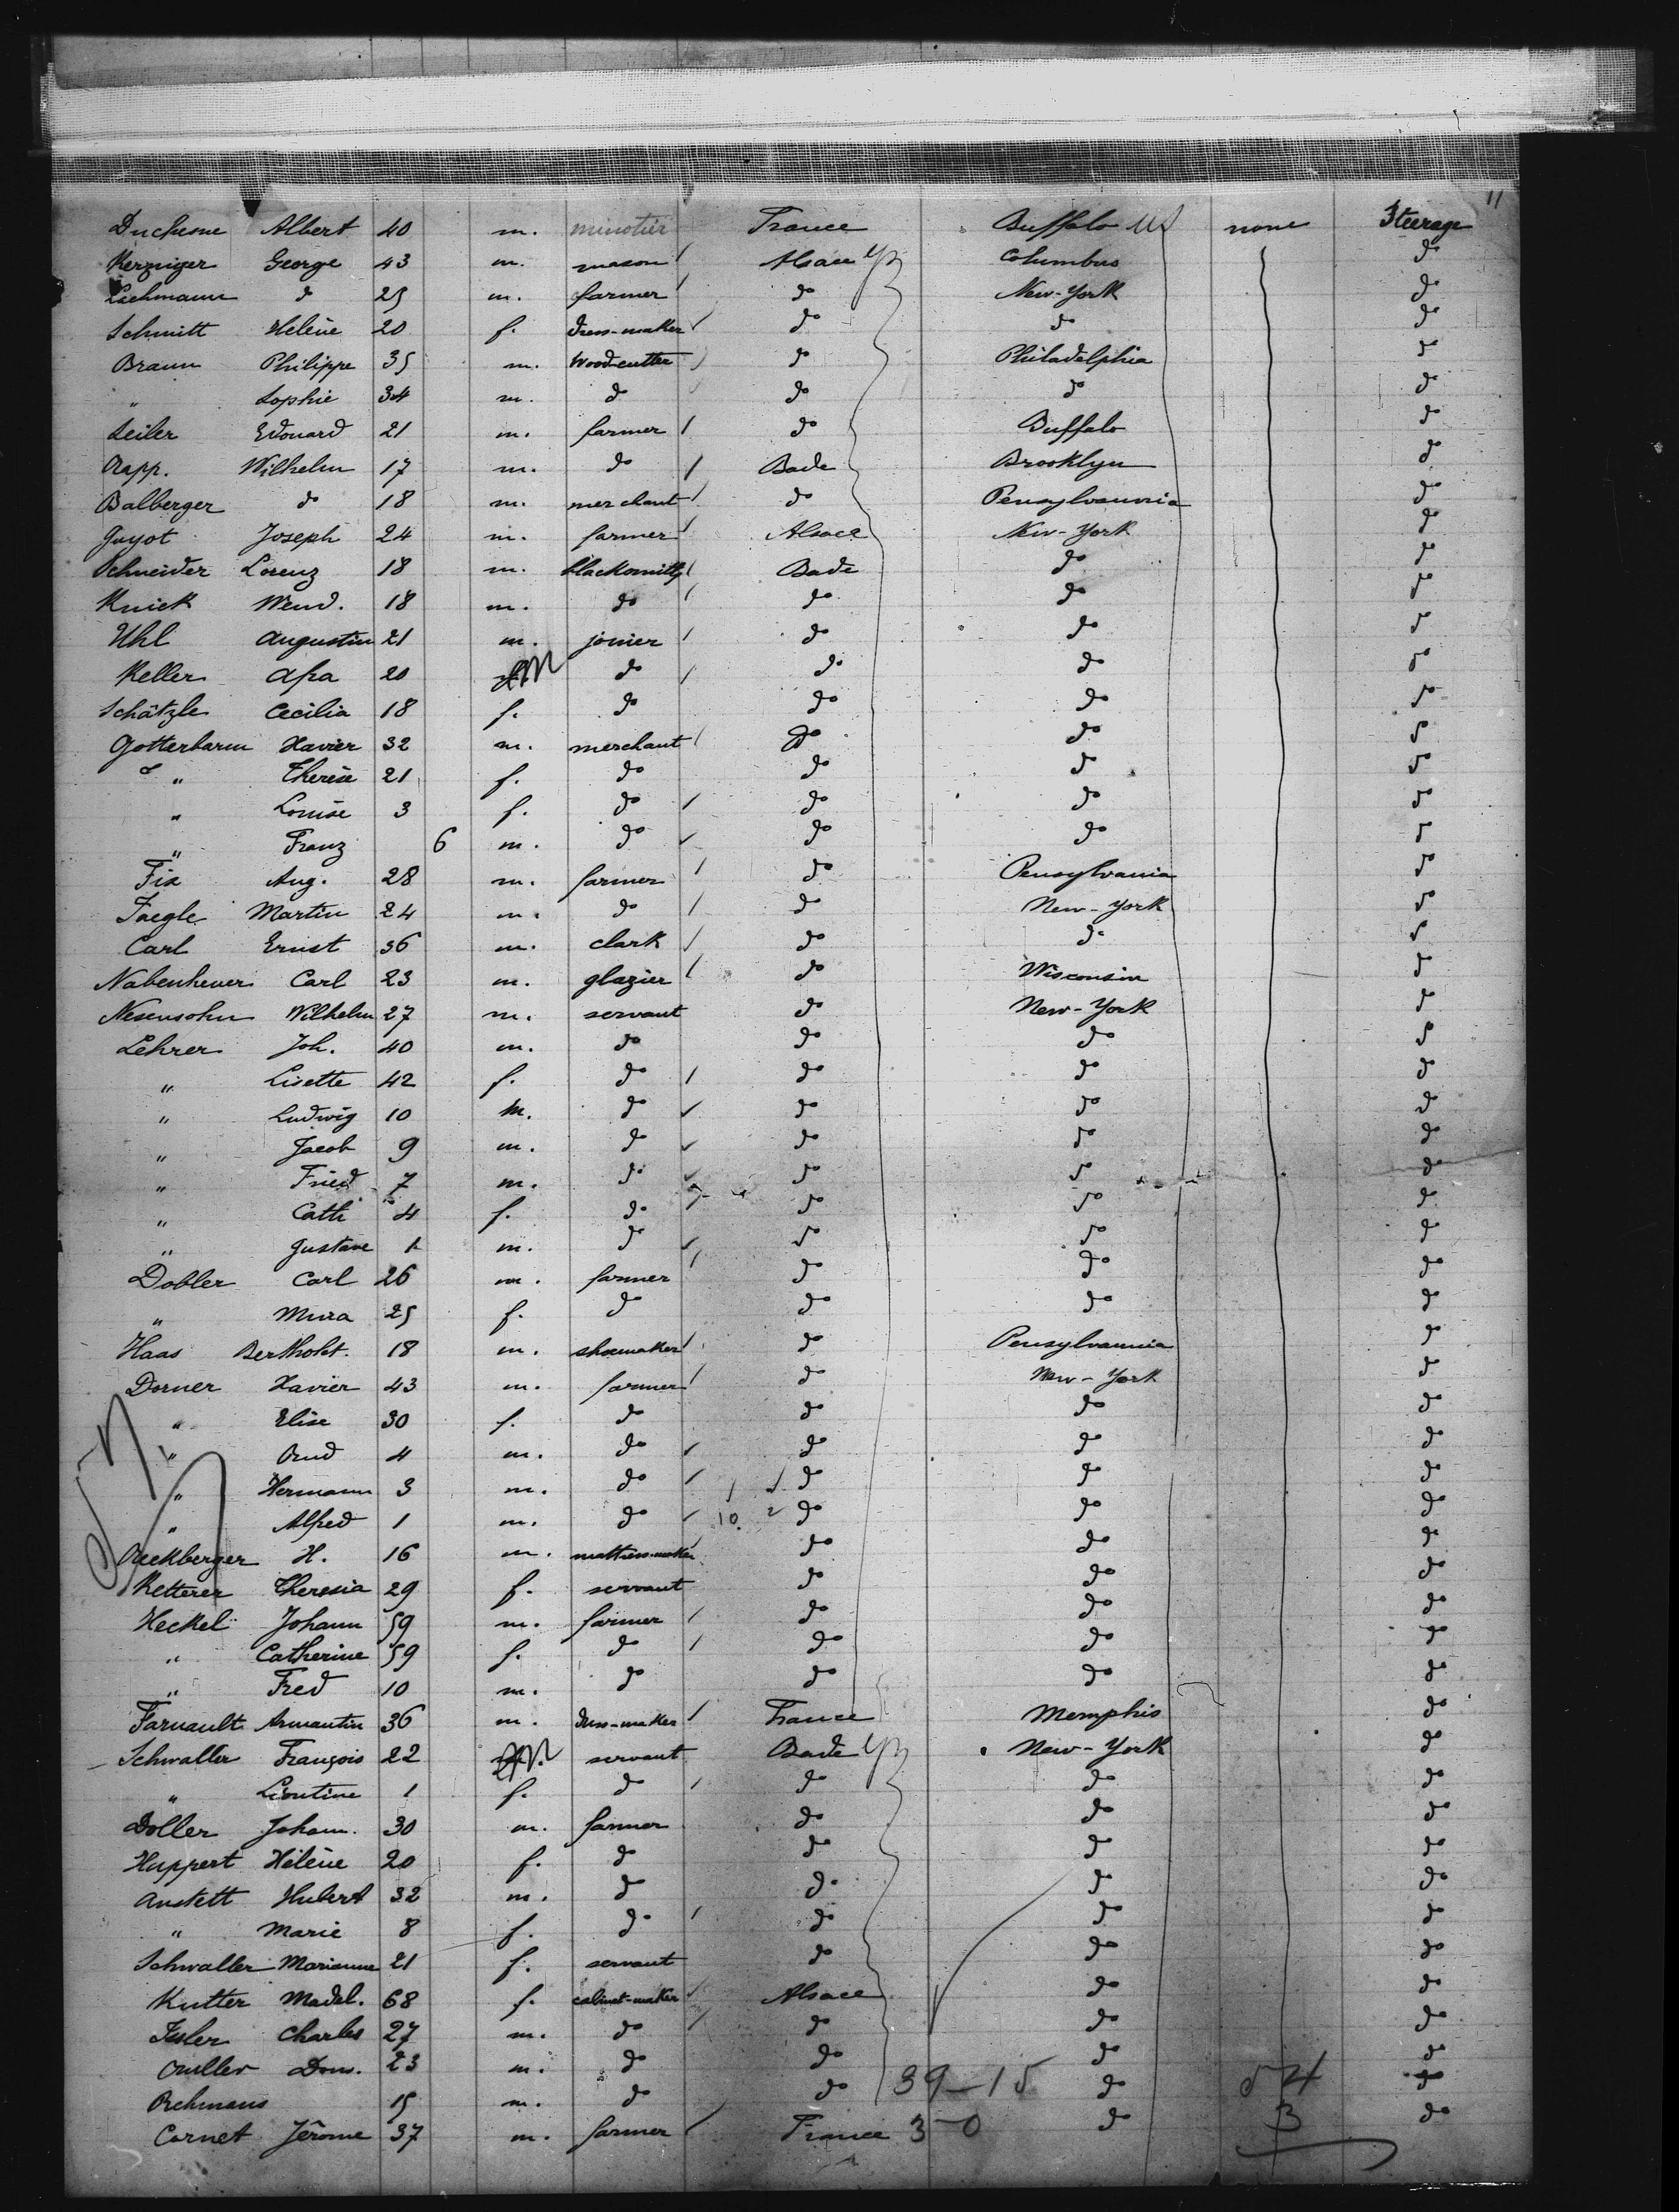 11
Duchesne Albert 40 m. minotier France Buffalo none Steerage
Kerzniger George 43 m. mason Alsace Columbus do
Lachmann do 25 m. farmer do New-York do
Schmitt Helène 20 f. dress-maker do do do
Braun Philippe 35 m. Wood-cutter do Philadelphia do
" Sophie 34 m. do do do do
Seiler Edouard 21 m. farmer do Buffalo do
Rapp. Wilhelm 17 m. do Bade Brooklyn do
Balberger do 18 m. merchant do Pensylvannia do
Guyot Joseph 24 m. farmer Alsace New-York do
Schneider Lorenz 18 m. blacksmith Bade do do
Knick Wend. 18 m. do do do do
Uhl Augustin 21 m. joiner do do do
Keller 20 m do do do do
Schätzle Cecilia 18 f. do do do do
Gotterbarm Xavier 32 m. merchant do do do
" Therèse 21 f. do do do do
" Louise 3 f. do do do do
" Franz 6 m. do do do do
Fix Aug. 28 m. farmer do Pensylvania do
Faegle Martin 24 m. do do New-York do
Carl Ernst 36 m. clark do do do
Nabenheuer Carl 23 m. glazier do Wisconsin do
Nesensohn Wilhelm 27 m. servant do New-York do
Lehrer Joh. 40 m. do do do do
" Lisette 42 f. do do do do
" Ludwig 10 m. do do do do
" Jacob 9 m. do do do do
" Fried 7 m. do do do do
" Cath 4 f. do do do do
" Gustave 1 m. do do do do
Dobler Carl 26 m. farmer do do do
" 25 f. do do do do
Haas Berthold. 18 m. shoemaker do Pensylvannia do
Dorner Xavier 43 m. farmer do New-York do
" Elise 30 f. do do do do
" Rud 4 m. do do do do
" Hermann 3 m. do do do do
" Alfred 1 m. do 10 2 do do do
Reckberger H. 16 m. mattress-maker do do do
Ketterer Theresia 29 f. servant do do do
Heckel Johann 59 m. farmer do do do
" Catherine 59 f. do do do do
" Fred 10 m. do do do do
Farnault Armantin 36 m. dress-maker France Memphis do
Schwaller François 22 m. servant Bade New-York do
" Léontine 1 f. do do do do
Doller Johann. 30 m. farmer do do do
Huppert Hélène 20 f. do do do do
Anstett Hubert 32 m. do do do do
" Marie 8 f. do do do do
Schwaller Marianne 21 f. servant do do do
Kutter Madel. 68 f. cabinet-maker Alsace do do
Charles 27 m. do do do do
Dom. 23 m. do do do do
Rehmans 15 m. do do 39-15 do 54 do
Cornet Jérome 37 m. farmer France 3-0 do 3 do